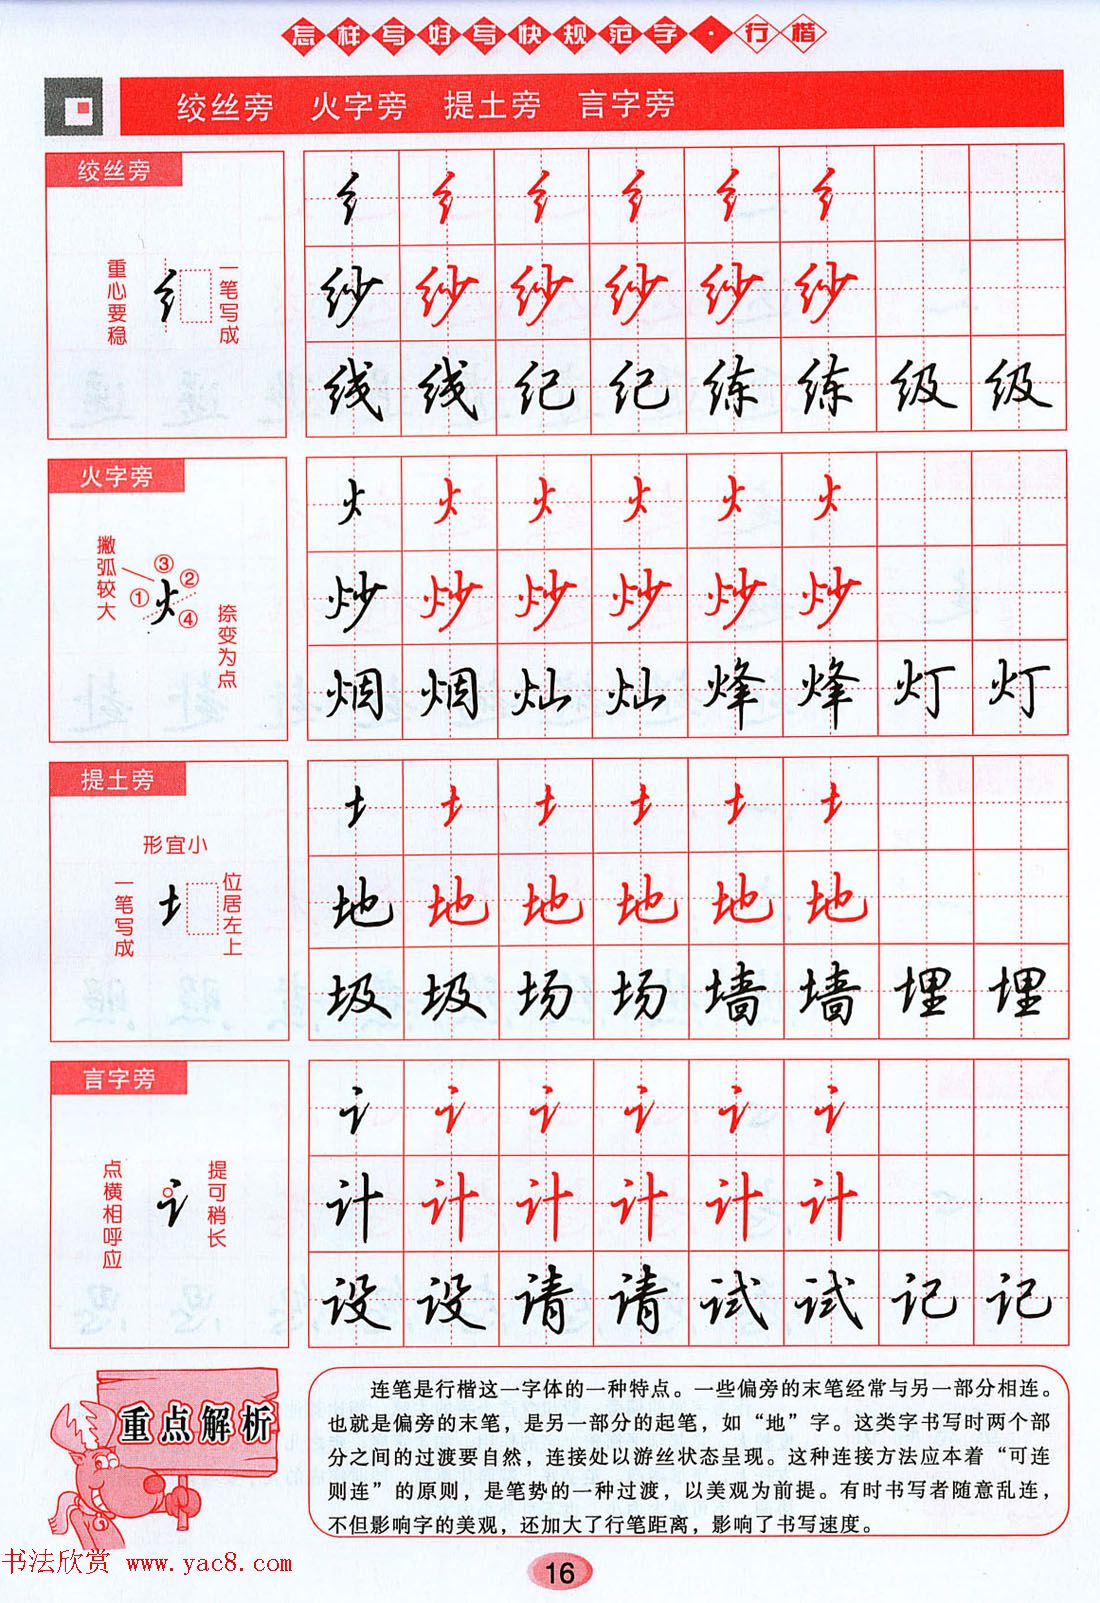 怎样写好写快规范字·行楷
绞丝旁 火字旁 提土旁 言字旁
绞丝旁
重心要稳
纟
一笔写成
纟 纟 纟 纟 纟 纟
纱 纱 纱 纱 纱 纱
线 线 纪 纪 练 练 级 级
火字旁
撇弧较大
① ② ③ ④
火
捺变为点
火 火 火 火 火 火
炒 炒 炒 炒 炒 炒
烟 烟 灿 灿 烽 烽 灯 灯
提土旁
形宜小
一笔写成
土
位居左上
土 土 土 土 土 土
地 地 地 地 地 地
圾 圾 场 场 墙 墙 埋 埋
言字旁
点横相呼应
讠
提可稍长
讠 讠 讠 讠 讠 讠
计 计 计 计 计 计
设 设 请 请 试 试 记 记
重点解析
连笔是行楷这一字体的一种特点。一些偏旁的末笔经常与另一部分相连。
也就是偏旁的末笔，是另一部分的起笔，如“地”字。这类字书写时两个部
分之间的过渡要自然，连接处以游丝状态呈现。这种连接方法应本着“可连
则连”的原则，是笔势的一种过渡，以美观为前提。有时书写者随意乱连，
不但影响字的美观，还加大了行笔距离，影响了书写速度。
书法欣赏 www.yac8.com
16